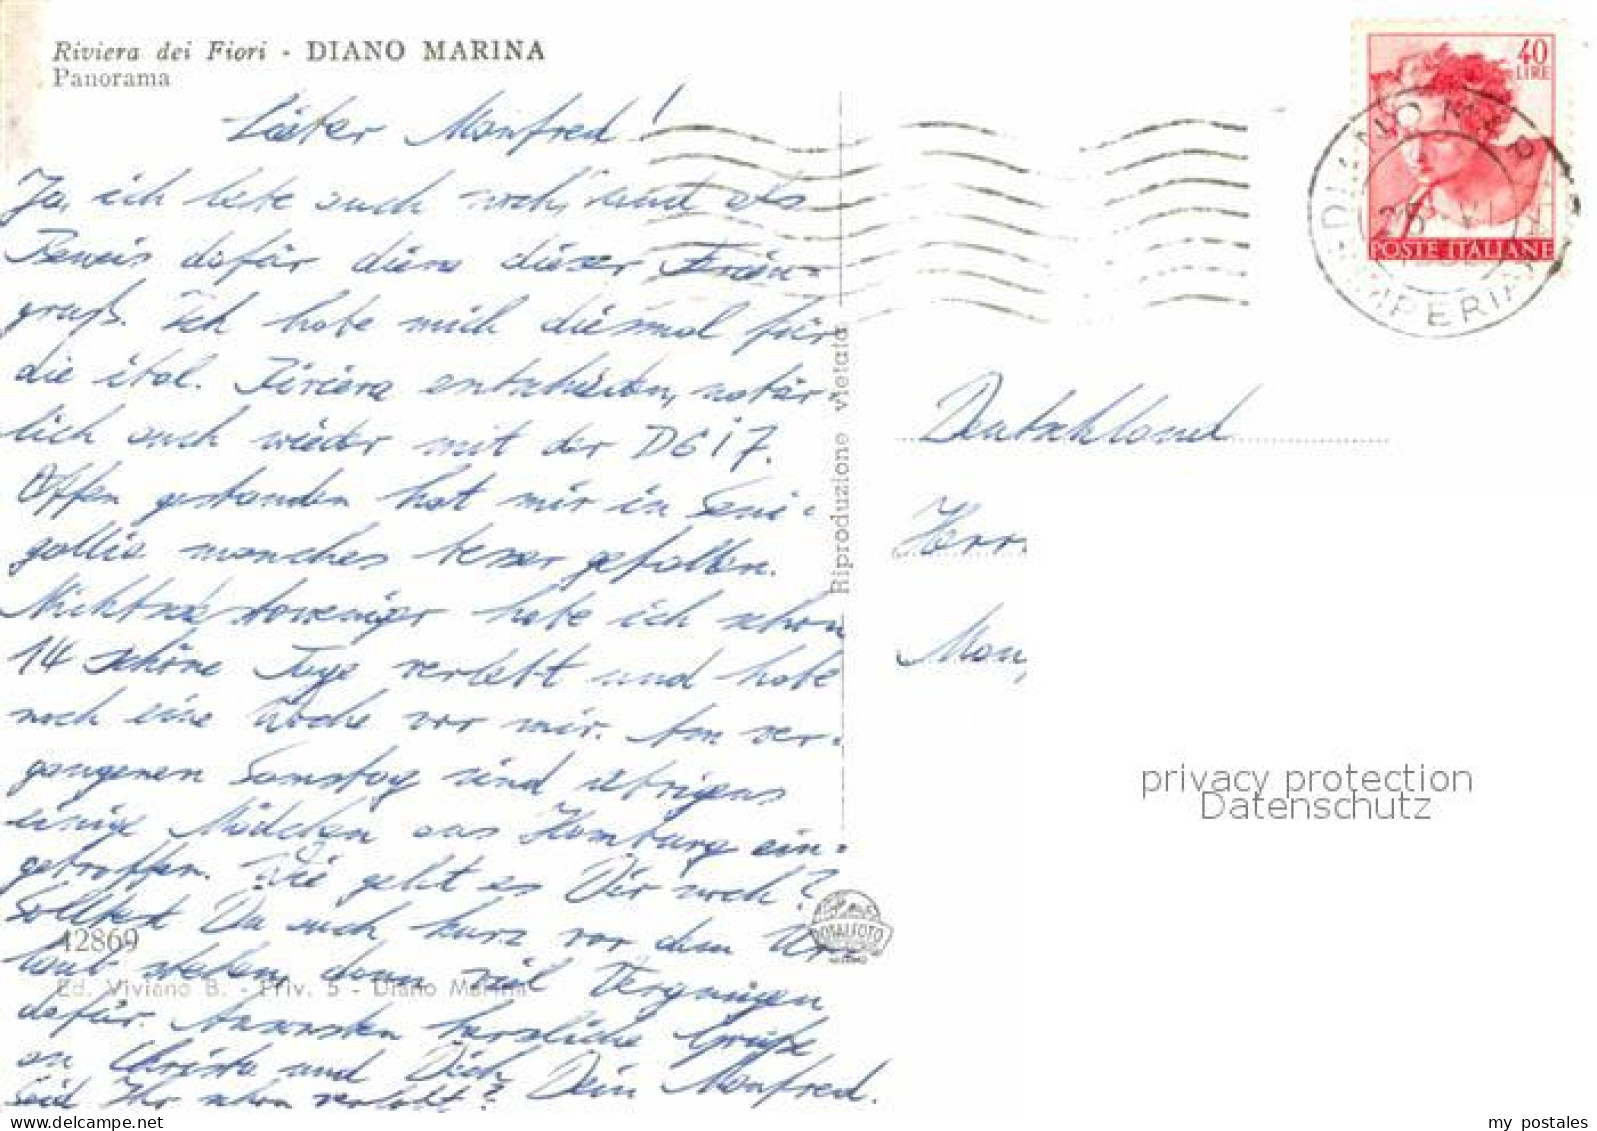 Riviera dei Fiori - DIANO MARINA
Panorama
Lieber Manfred!
Ja, ich lebe auch noch, und als
Beweis dafür diene dieser Ferien-
gruß. Ich habe mich diesmal für
die ital. Riviera entschieden, natür-
lich auch wieder mit der DG 17.
Offen gestanden hat mir in Seni-
gallia manches besser gefallen.
Nichtsdestoweniger habe ich schon
14 schöne Tage verlebt und habe
noch eine Woche vor mir. Am ver-
gangenen Samstag sind übrigens
einige Mädchen aus Homburg ein-
getroffen. Wie geht es Dir noch?
Solltest Du auch kurz vor dem Ur-
laub stehen, dann viel Vergnügen
dafür. Ansonsten herzliche Grüße
an Christa und Dich Dein Manfred.
Seid Ihr schon verlobt?
42869
Ed. Viviano B. - Priv. 5 - Diano Marina
Riproduzione vietata
TOTALFOTO
40
LIRE
POSTE ITALIANE
DIANO MARINA
IMPERIA
Deutschland
Herrn
Man
privacy protection
Datenschutz
my postales